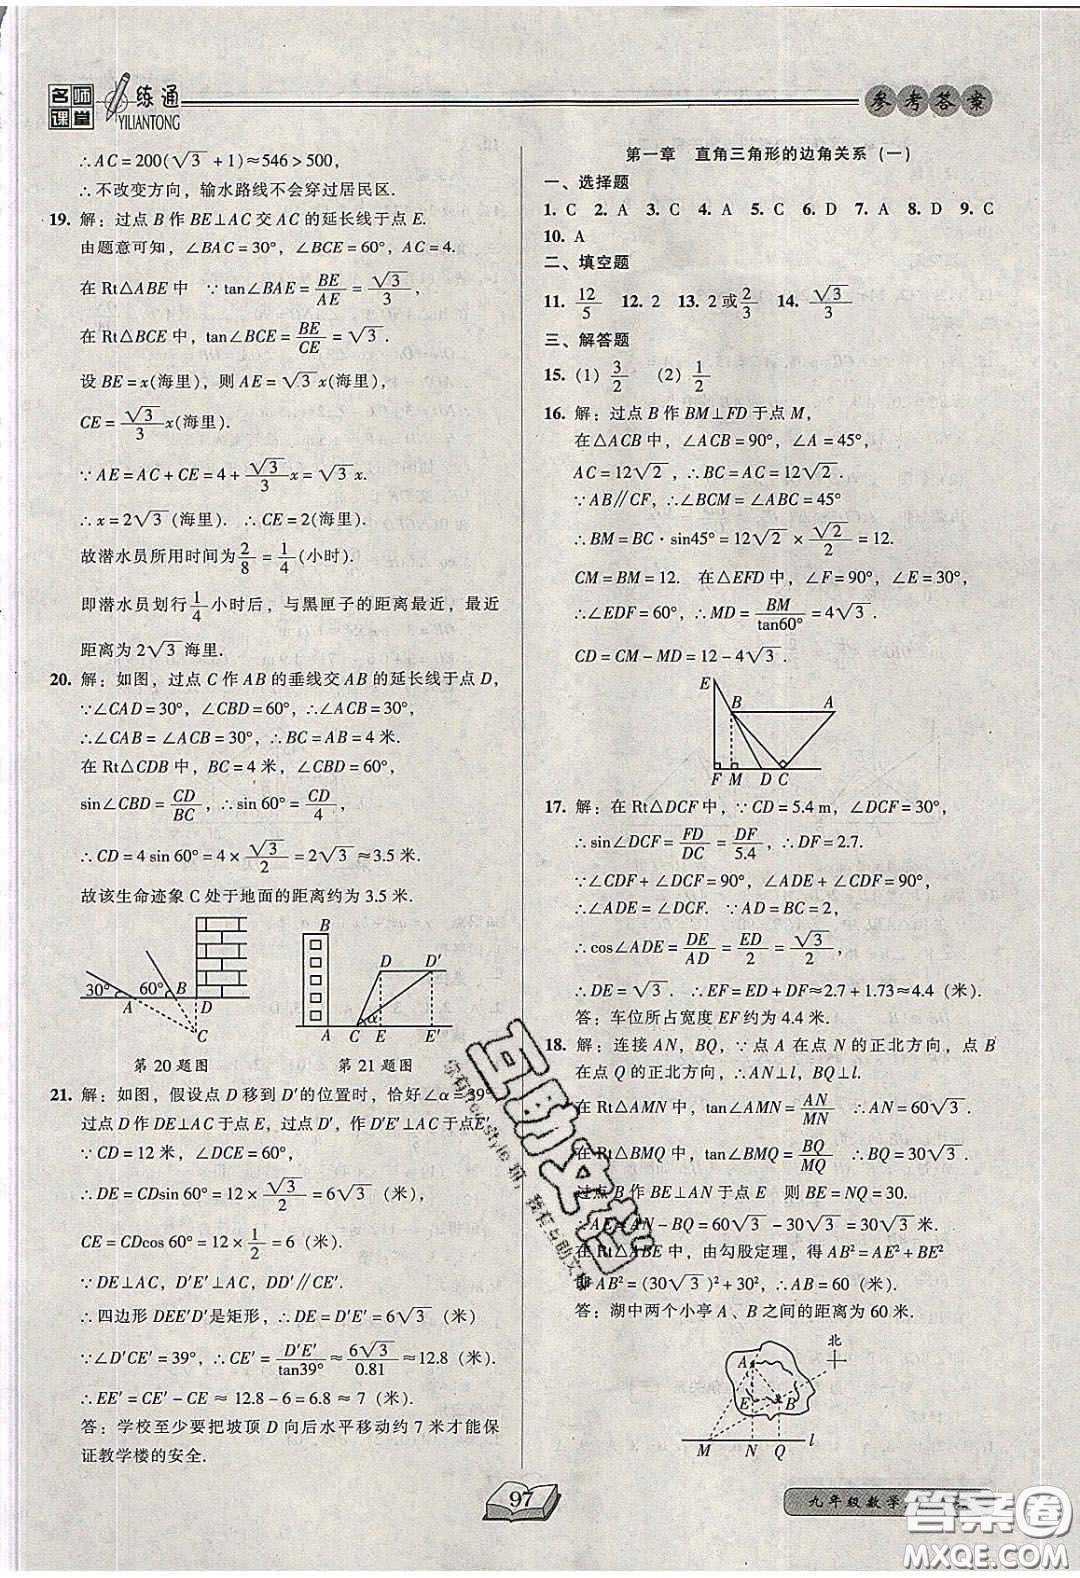 名师课堂 一练通
YILIANTONG
参考答案
∴AC=200(√3+1)≈546>500,
∴不改变方向，输水路线不会穿过居民区.
19. 解：过点B作BE⊥AC交AC的延长线于点E.
由题意可知，∠BAC=30°，∠BCE=60°，AC=4.
在Rt△ABE中 ∵tan∠BAE=BE/AE=√3/3，
在Rt△BCE中，tan∠BCE=BE/CE=√3.
设BE=x(海里)，则AE=√3x(海里)，
CE=√3/3x(海里).
∵AE=AC+CE=4+√3/3x=√3x.
∴x=2√3(海里). ∴CE=2(海里).
故潜水员所用时间为2/8=1/4(小时).
即潜水员划行1/4小时后，与黑匣子的距离最近，最近
距离为2√3海里.
20. 解：如图，过点C作AB的垂线交AB的延长线于点D，
∵∠CAD=30°，∠CBD=60°，∴∠ACB=30°，
∴∠CAB=∠ACB=30°，∴BC=AB=4米.
在Rt△CDB中，BC=4米，∠CBD=60°，
sin∠CBD=CD/BC，∴sin60°=CD/4，
∴CD=4sin60°=4×√3/2=2√3≈3.5米.
故该生命迹象C处于地面的距离约为3.5米.
30° 60° A B D C
B D D′ α A C E E′
第20题图 第21题图
21. 解：如图，假设点D移到D′的位置时，恰好∠α=39°
过点D作DE⊥AC于点E，过点D′，作D′E′⊥AC于点E′
∵CD=12米，∠DCE=60°，
∴DE=CDsin60°=12×√3/2=6√3（米），
CE=CDcos60°=12×1/2=6（米）.
∵DE⊥AC，D′E′⊥AC，DD′∥CE′.
∴四边形DEE′D′是矩形，∴DE=D′E′=6√3（米）
∵∠D′CE′=39°，∴CE′=D′E′/tan39°≈6√3/0.81≈12.8（米）.
∴EE′=CE′-CE≈12.8-6=6.8≈7（米）.
答：学校至少要把坡顶D向后水平移动约7米才能保
证教学楼的安全.
第一章 直角三角形的边角关系（一）
一、选择题
1. C 2. A 3. C 4. A 5. C 6. D 7. A 8. D 9. C
10. A
二、填空题
11. 12/5 12. 2 13. 2或2/3 14. √3/3
三、解答题
15. (1) 3/2 (2) 1/2
16. 解：过点B作BM⊥FD于点M，
在△ACB中，∠ACB=90°，∠A=45°，
AC=12√2，∴BC=AC=12√2.
∵AB∥CF，∴∠BCM=∠ABC=45°
∴BM=BC·sin45°=12√2×√2/2=12.
CM=BM=12. 在△EFD中，∠F=90°，∠E=30°，
∴∠EDF=60°，∴MD=BM/tan60°=4√3.
CD=CM-MD=12-4√3.
E B A F M D C
17. 解：在Rt△DCF中，∵CD=5.4m，∠DCF=30°，
∴sin∠DCF=FD/DC=DF/5.4，∴DF=2.7.
∵∠CDF+∠DCF=90°，∠ADE+∠CDF=90°，
∴∠ADE=∠DCF. ∵AD=BC=2，
∴cos∠ADE=DE/AD=ED/2=√3/2，
∴DE=√3. ∴EF=ED+DF≈2.7+1.73≈4.4（米）.
答：车位所占宽度EF约为4.4米.
18. 解：连接AN，BQ，∵点A在点N的正北方向，点B
在点Q的正北方向，∴AN⊥l，BQ⊥l.
在Rt△AMN中，tan∠AMN=AN/MN ∴AN=60√3.
在Rt△BMQ中，tan∠BMQ=BQ/MQ ∴BQ=30√3.
过点B作BE⊥AN于点E 则BE=NQ=30.
∴AE=AN-BQ=60√3-30√3=30√3米.
在Rt△ABE中，由勾股定理，得AB²=AE²+BE²
即AB²=(30√3)²+30²，∴AB=60（米）.
答：湖中两个小亭A、B之间的距离为60米.
北 A E B M N Q l
97
九年级数学
互助文档
答案圈
MXQE.COM